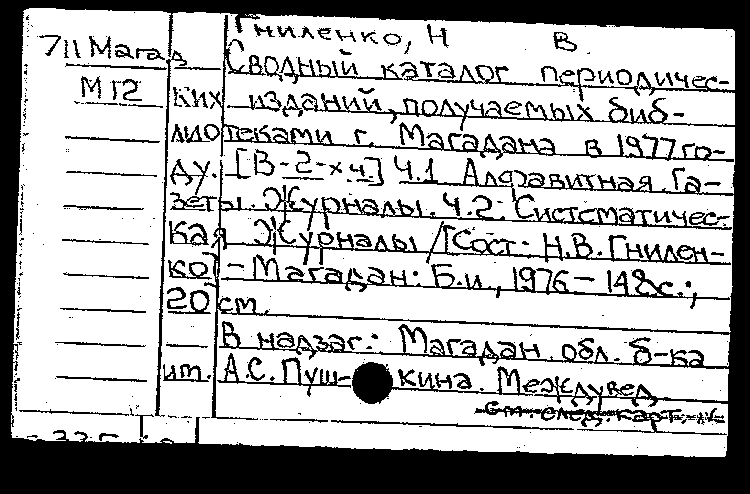 Гниленко, Н В.
711 Магад Сводный каталог периодичес-
М12 ких изданий, получаемых биб-
лиотеками г. Магадана в 1977 го-
ду. [В-2-х ч.] Ч.1 Алфавитная. Га-
зеты. Журналы. Ч.2. Систематичес-
кая Журналы /[Сост: Н.В. Гнилен-
ко] - Магадан: Б.и., 1976 - 148с.;
20 см.
В надзаг.: Магадан. обл. б-ка
им. А.С. Пушкина. Междувед
См. след. карт.